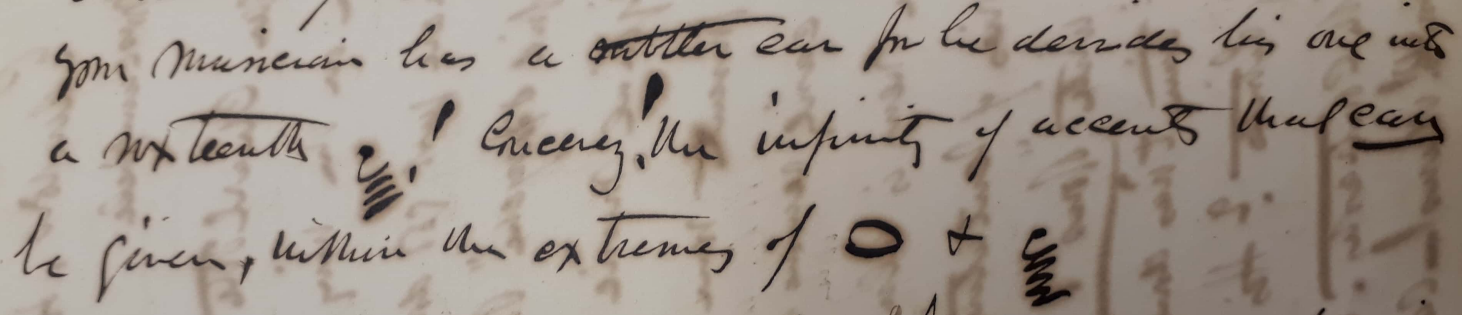 your musician has a subtler ear for he devides his one into
a sixteenth ! Concevez! the infinity of accents that can
be given, within the extremes of O +